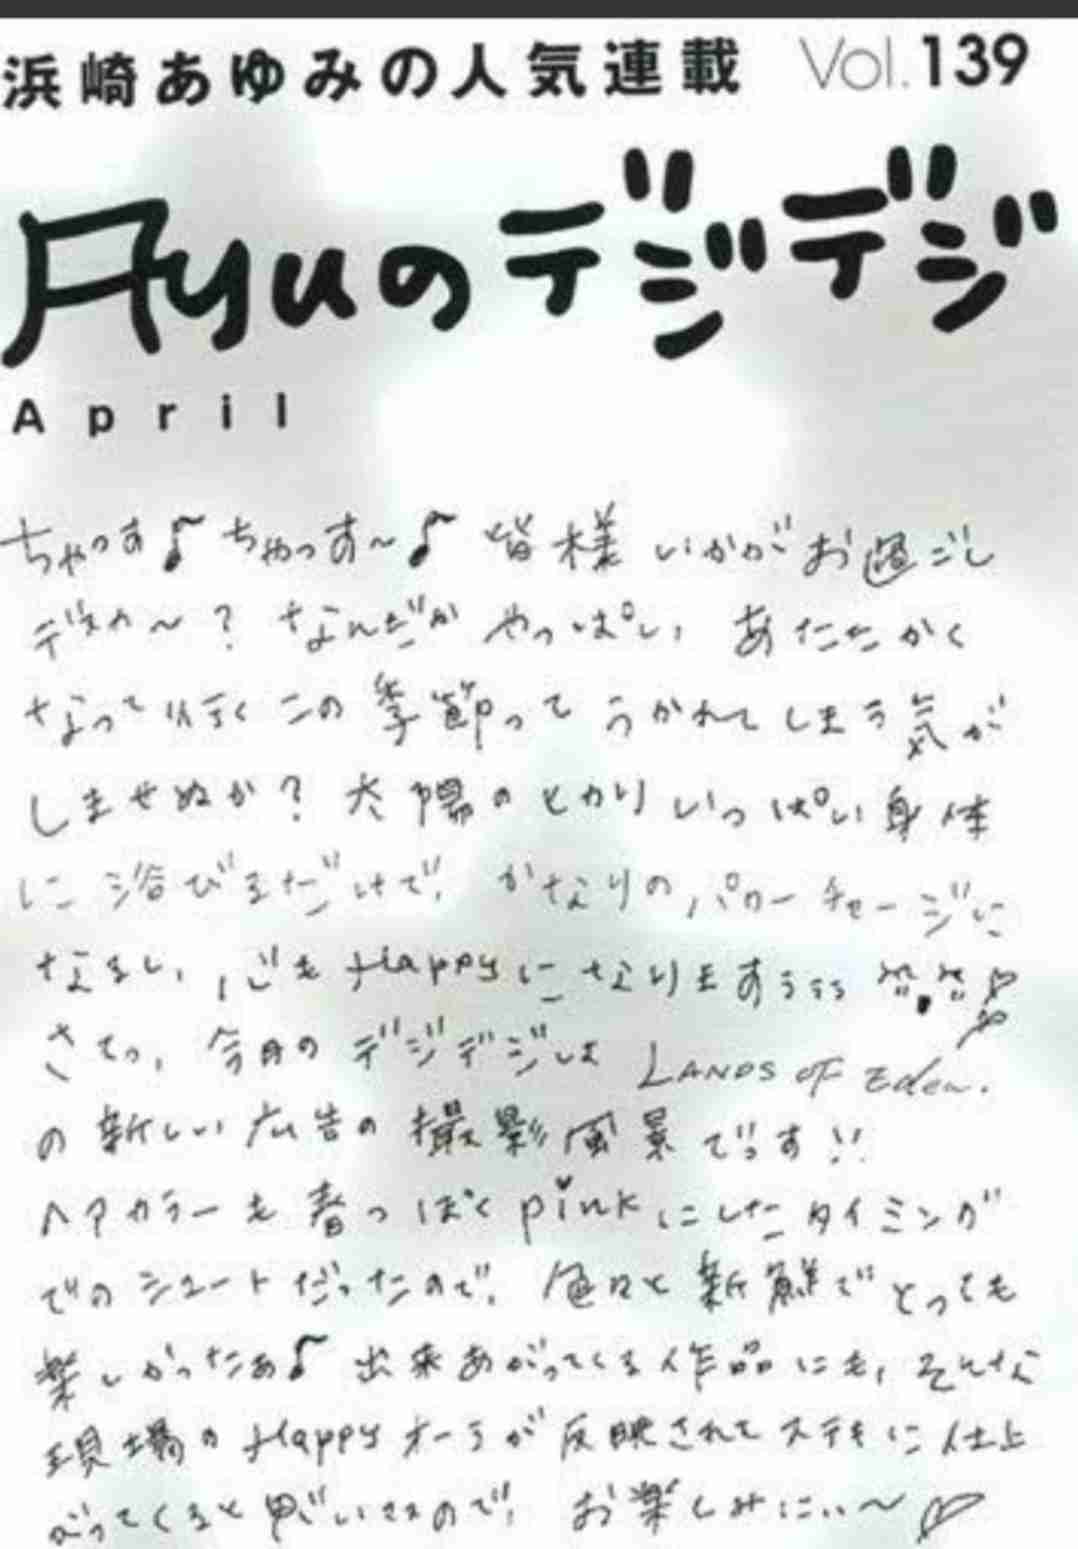 浜崎あゆみの人気連載 Vol.139
Ayuのデジデジ
April
ちゃっす♪ちゃっす〜♪ 皆様 いかがお過ごし
デスカ〜? なんだか やっぱぃ あたたかく
なって行く この季節って うかれてしまう気が
しませぬか? 太陽のヒカリ いっぱい身体
に浴びるだけで、かなりのパワーチャージに
なるし、心も Happyになりますぅぅぅ
さてっ、今月の デジデジは LANDS OF Eden.
の新しい広告の撮影風景でっす!!
ヘアカラーも春っぽく pinkにしたタイミング
でのシュートだったので、色々と新鮮でとっても
楽しかったぁ♪ 出来あがってくる作品にも、そんな
現場の Happyオーラが反映されてステキに仕上
がってくると思いマスので、お楽しみにぃ〜